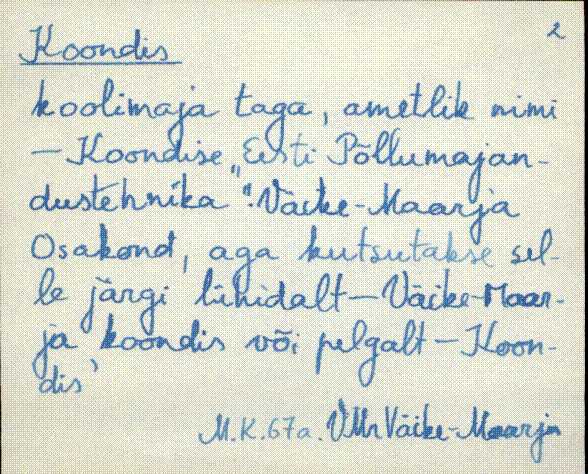 2
Koondis
koolimaja taga, ametlik nimi
— Koondise „Eesti Põllumajan-
dustehnika". Väike-Maarja
Osakond, aga kutsutakse sel-
le järgi lühidalt — Väike-Maar-
ja koondis või pelgalt — Koon-
dis
M.K. 67a. VMr Väike-Maarja